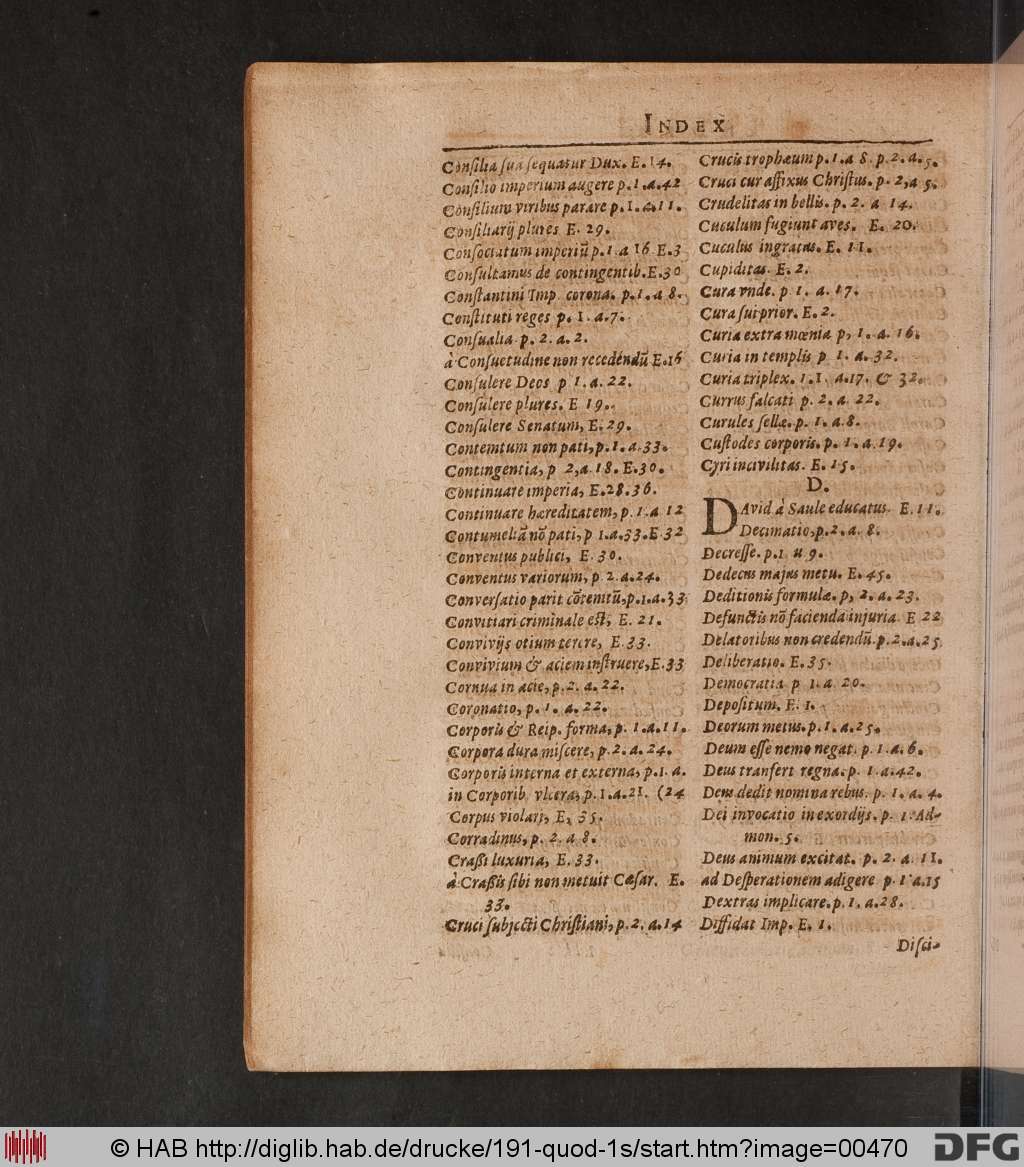 INDEX
Consilia sua sequatur Dux. E. 14.
Consilio imperium augere p. 1. a. 42
Consilium viribus parare p. 1. a. 11.
Consiliarij plures E. 29.
Consociatum imperiū p. 1. a 16 E. 3
Consultamus de contingentib. E. 30
Constantini Imp. corona. p. 1. a 8.
Constituti reges p. 1. a. 7.
Consualia p. 2. a. 2.
à Consuetudine non recedendū E. 16
Consulere Deos p 1. a. 22.
Consulere plures. E 19.
Consulere Senatum, E. 29.
Contemtum non pati, p. 1. a. 33.
Contingentia, p 2, a. 18. E. 30.
Continuare imperia, E. 28. 36.
Continuare hæreditatem, p. 1. a 12
Contumeliā nō pati, p 1. a. 33. E. 32
Conventus publici, E. 30.
Conventus variorum, p 2. a. 24.
Conversatio parit cōtemtū, p. 1. a. 33
Convitiari criminale est, E. 21.
Convivijs otium terere, E. 33.
Convivium & aciem instruere, E. 33
Cornua in acie, p. 2. a. 22.
Coronatio, p. 1. a. 22.
Corporis & Reip. forma, p. 1. a. 11.
Corpora dura miscere, p. 2. a. 24.
Corporis interna et externa, p. 1. a.
in Corporib. vlcera, p. 1. a. 21. (24
Corpus violari, E. 35.
Corradinus, p. 2. a 8.
Crassi luxuria, E. 33.
à Crassis sibi non metuit Cæsar. E.
33.
Cruci subjecti Christiani, p. 2. a. 14
Crucis trophæum p. 1. a 8. p. 2. a. 5.
Cruci cur affixus Christus. p. 2, a 5.
Crudelitas in bellis. p. 2. a 14.
Cuculum fugiunt aves. E. 20.
Cuculus ingratus. E. 11.
Cupiditas. E. 2.
Cura vnde. p 1. a. 17.
Cura sui prior. E. 2.
Curia extra mœnia p, 1. a. 16.
Curia in templis p 1. a. 32.
Curia triplex. 1. 1. a. 17. & 32.
Currus falcati p. 2. a. 22.
Curules sellæ. p. 1. a. 8.
Custodes corporis. p. 1. a. 19.
Cyri incivilitas. E. 15.
D.
DAvid à Saule educatus. E. 11.
Decimatio, p. 2. a. 8.
Decresse. p. 1 a 9.
Dedecus majus metu. E. 45.
Deditionis formulæ. p, 2. a. 23.
Defunctis nō facienda injuria. E 22
Delatoribus non credendū. p. 2. a. 25
Deliberatio. E. 35.
Democratia p 1. a 20.
Depositum, E. 1.
Deorum metus. p. 1. a. 25.
Deum esse nemo negat. p. 1. a. 6.
Deus tranfert regna. p. 1. a. 42.
Deus dedit nomina rebus. p. 1. a. 4.
Dei invocatio in exordijs. p. 1. Ad-
mon. 5.
Deus animum excitat. p. 2. a. 11.
ad Desperationem adigere p 1 a. 15
Dextras implicare. p. 1. a. 28.
Diffidat Imp. E. 1.
Disci-
© HAB http://diglib.hab.de/drucke/191-quod-1s/start.htm?image=00470
DFG